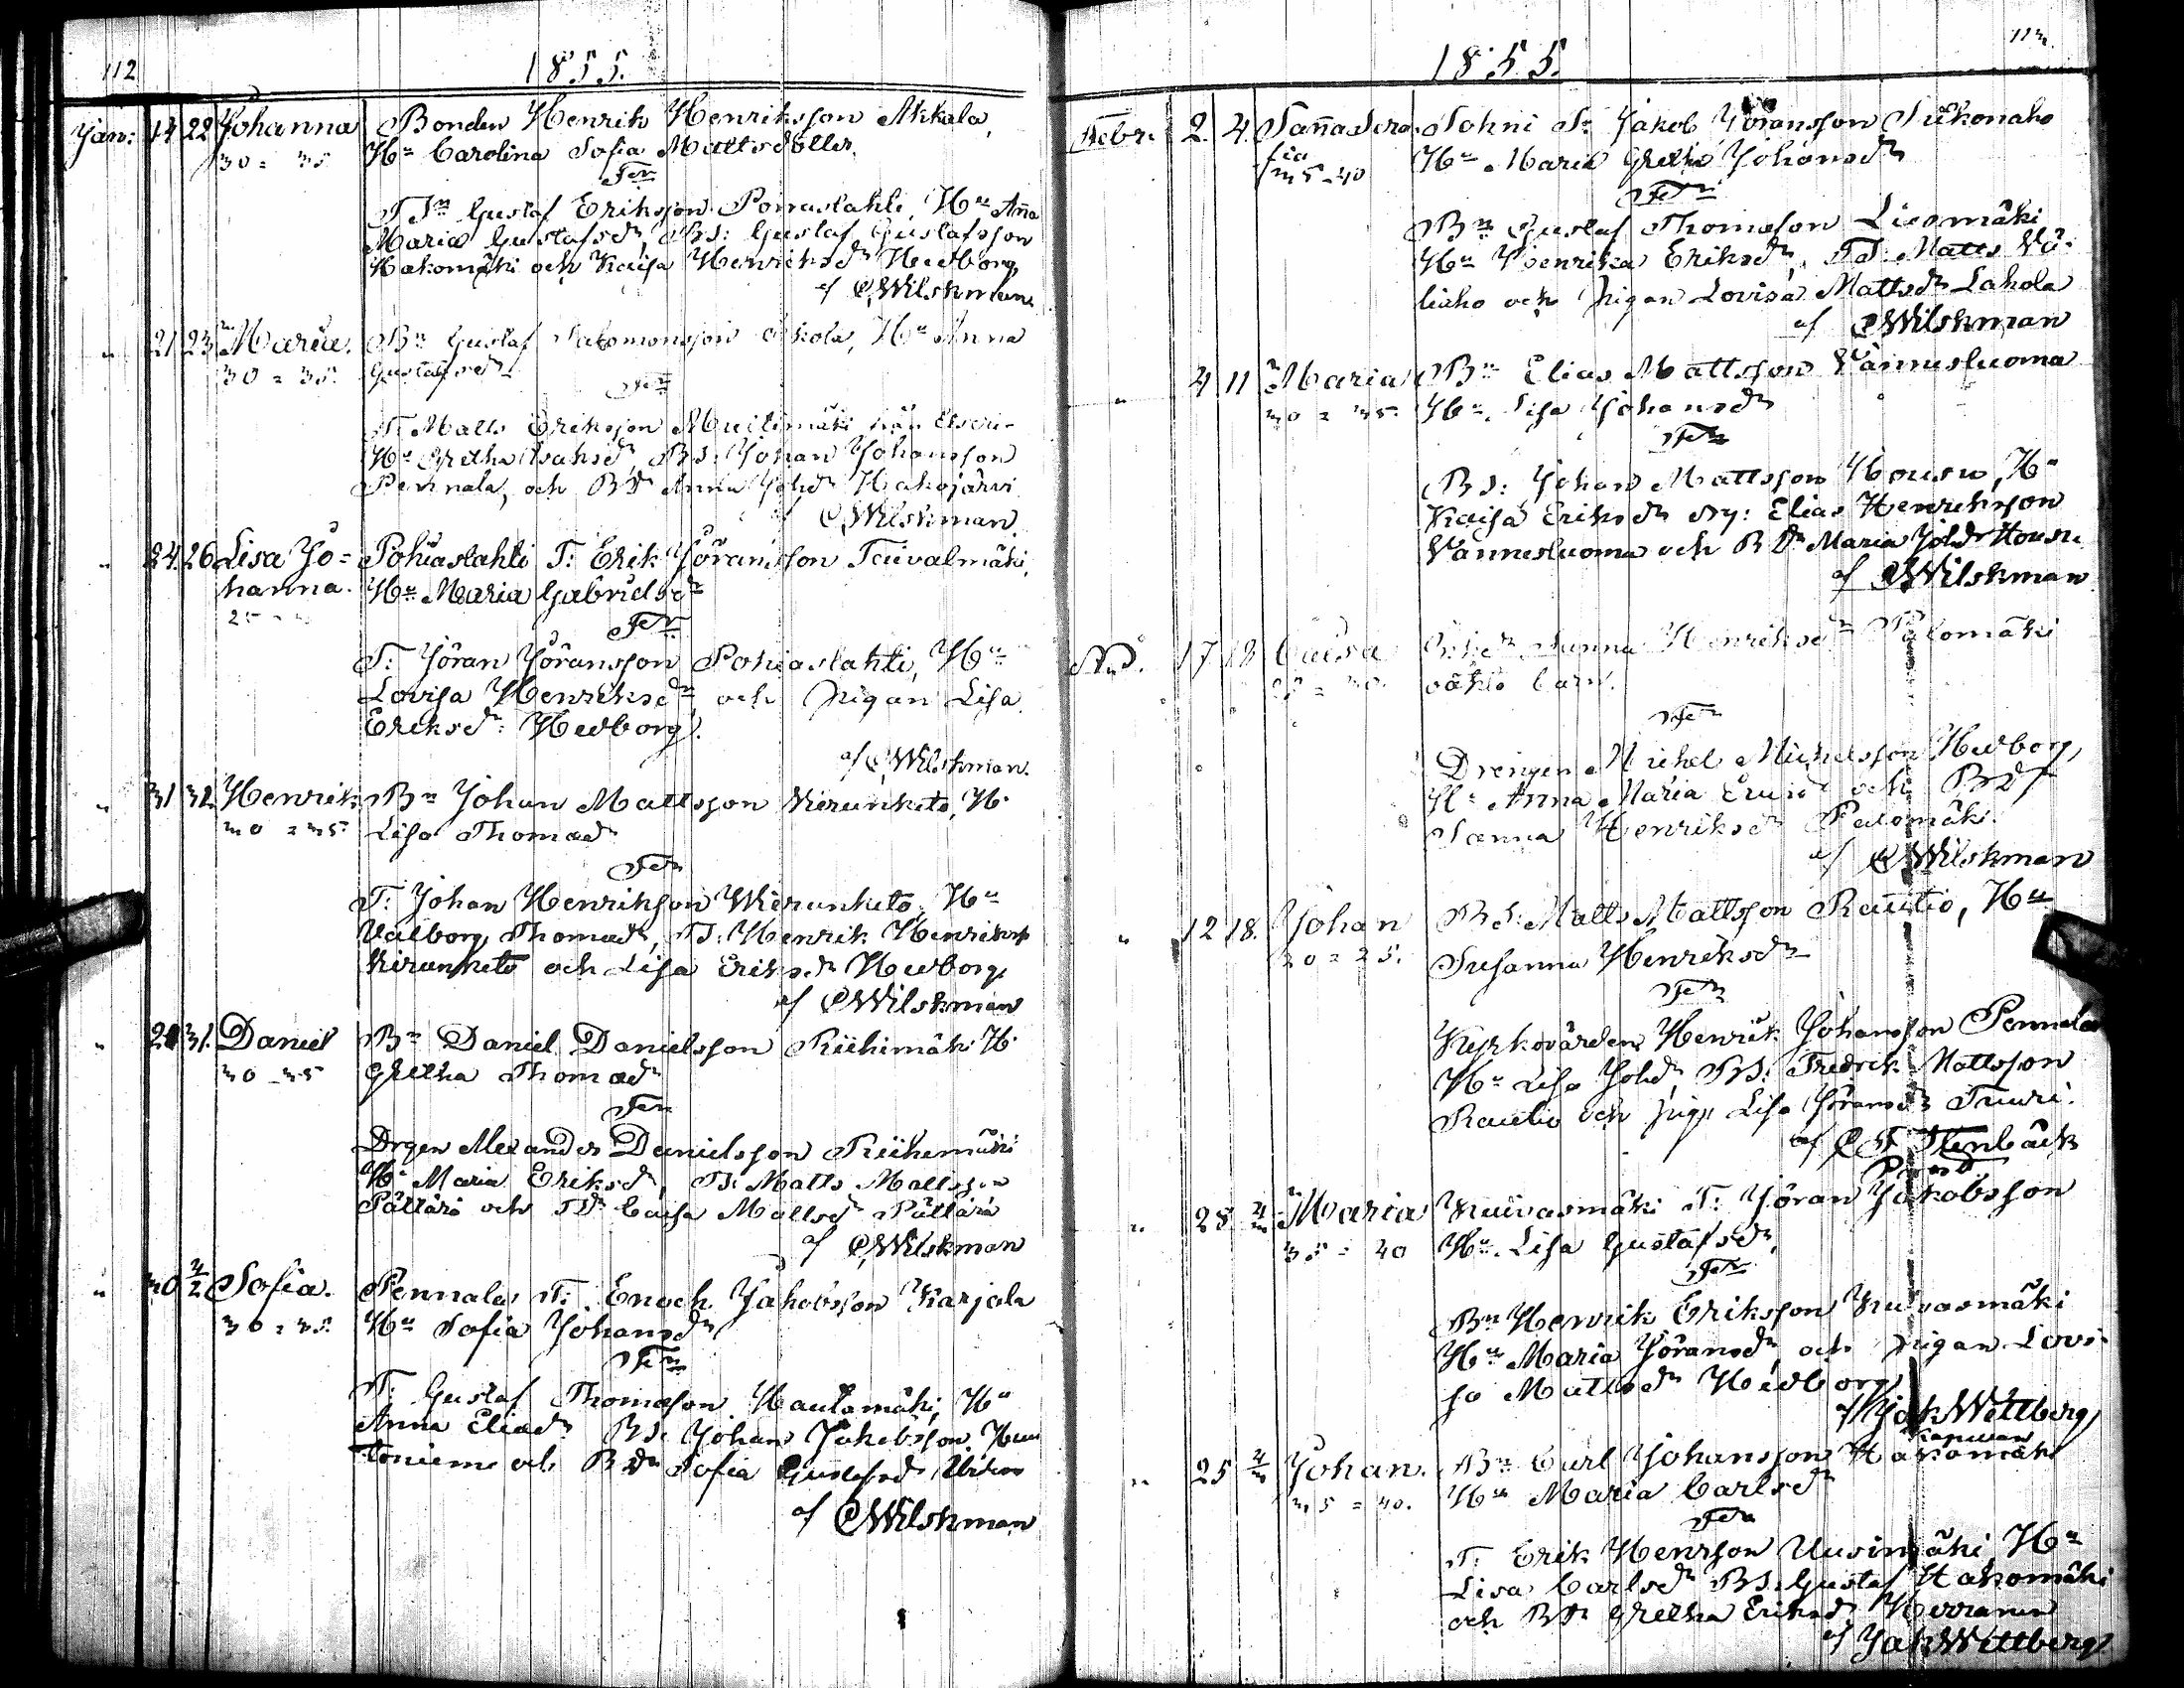 112
1855.
Jan: 14 22 Johanna Bonden Henrik Henriksson Akkala,
30 = 35 Hu Carolina Sofia Mattsdotter.
Fr
TSn Gustaf Eriksson Porraslahti, Hu Aña
Maria Gustafsdr, BS: Gustaf Gustafsson
Hakomäki och Kaisa Henriksdr Hedborg,
af CWilskman
" 21 23 Maria. Bn Gustaf Salomonsson Hu Anna
30 = 35. Gustafsdr
Fr
T. Matts Eriksson
Hu Gretha Isaksdr BS: Johan Johansson
Pennala, och BD Anna Johdr Hakojärvi
CWilskman
" 24. 26 Lisa Jo= Pohiaslahti T: Erik Jöransson Taivalmäki,
hanna. Hu Maria Gabrielsdr
25
Fr
T: Jöran Jöransson Pohiaslahti, Hu
Lovisa Henriksdr och pigan Lisa
Eriksdr: Hedborg.
af CWilskman.
" 31 Henrik Bn Johan Mattsson Kirunketo, H.
30 = 35 Lisa Thomadr
Fr
T: Johan Henriksson Wierunketo, Hu
Valborg Thomadr, TS: Henrik Henrikss
Kirunketo och Lisa Eriksdr Hedborg,
af CWilskman
" 31. Daniel Bn Daniel Danielsson Riihimäki H.
30 - 35 Gretha Thomadr
Fr
Drgen Alexander Danielsson Riihemäki
Hu Maria Eriksdr, TS: Matts Mattsson
Pältärä och TDr Caisa Mattsdr Pältärä
af CWilskman
" 30 4/2 Sofia. Pennala, T: Enoch Jakobsson Karjala
30 = 35. Hu Sofia Johansdr
Fr
T: Gustaf Thomasson Hautamäki, Hu
Anna Eliadr BS: Johan Jakobsson
och BDr Sofia Gustafsdr
af CWilskman
113.
1855.
Febr. 2. 4. Saña Sofia Jakob Jöransson
35 - 40 Hu Maria Gretha Johansdr
Fr
Bn Gustaf Thomasson Liesmäki
Hu Henrika Eriksdr, TS. Matts Vä-
liaho och pigan Lovisa Mattsdr Lahola
af CWilskman
" 4 11 Maria Bn Elias Mattsson Vannesluoma
30 = 35. Hu. Lisa Johansdr
Fr
BS: Johan Mattsson Housu, Hu
Kaisa Eriksdr drg: Elias Henriksson
Vannesluoma och BDr Maria Johdr Housu
af CWilskman
17 18 Caisa Sanna Henriksdr Palomäki
35 = 40. oäkta barn.
Fr
Drengen Michel Michelsson Hedborg,
Hu Anna Maria och BDr
Sanna Henriksdr Palomäki.
af CWilskman
" 12 18. Johan BS: Matts Mattsson Rautio, Hu
20 = 25. Susanna Henriksdr
Fr
Kyrkovärden Henrik Johansson Pennala
Hu Lisa Johdr, BS: Fredrik Mattsson
Rautio och pigan Lisa Jöransdr Tuuri.
af C F Stenbäck
" 25 4/3 Maria Kuivasmäki T: Jöran Jakobsson
35 = 40 Hu. Lisa Gustafsdr,
Fr
Bn Henrik Eriksson Kuivasmäki
Hu Maria Jöransdr, och pigan Lovi-
sa Mattsdr Hedborg
af Jak Wettberg
Kapellan
" 25 4/3 Johan. Bn Carl Johansson Hakomäki
35 = 40. Hu Maria Carlsdr
Fr
T: Erik Henrsson Uusimäki, Hu
Lisa Carlsdr BS: Gustaf Hakomäki
och BDr Gretha Eriksdr Herranen
af Jak Wettberg